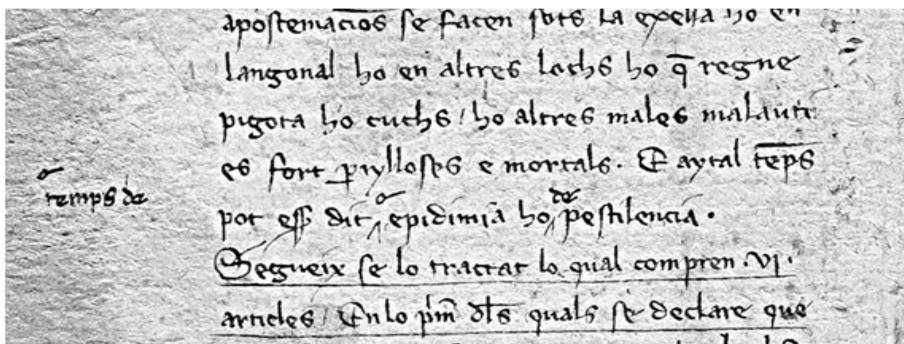 apostemacios se facen sots la exella ho en
langonal ho en altres lochs ho q̄ regne
pigota ho cuchs / ho altres males malauti
es fort ꝑylloses e mortals. E aytal tēps
temps de
pot esser dit epidimia ho de pestilencia.
Segueix se lo tractat lo qual compren .vi.
articles / En lo pͥm dls quals se declare que